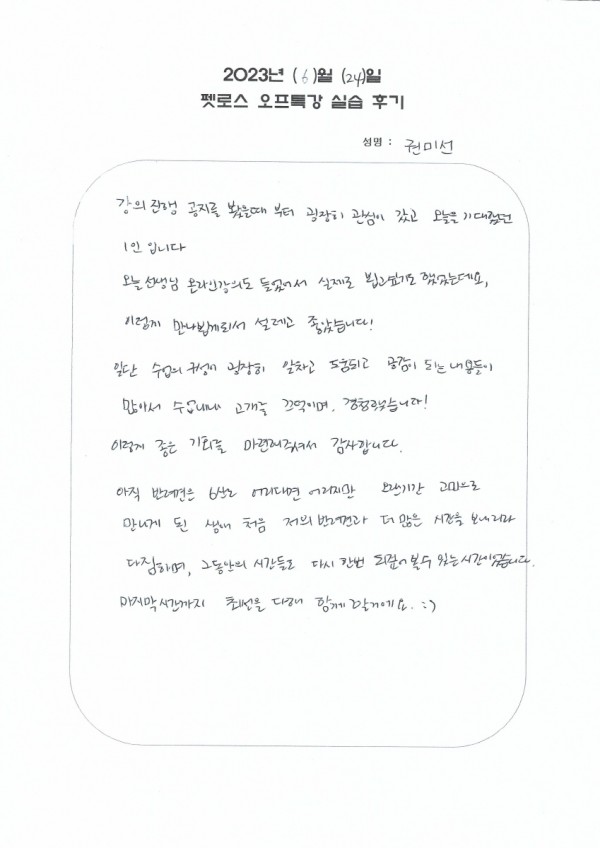 2023년 (6)월 (24)일
펫로스 오프특강 실습 후기
성명 : 권미선
강의 진행 공지를 봤을때 부터 굉장히 관심이 갔고 오늘을 기대했던
1인 입니다
오늘 선생님 온라인강의도 들었어서 실제로 뵙고싶기도 했었는데요,
이렇게 만나뵙게되서 설레고 좋았습니다!
일단 수업의 구성이 굉장히 알차고 도움되고 공감이 되는 내용들이
많아서 수업내내 고개를 끄덕이며, 경청했습니다!
이렇게 좋은 기회를 마련해주셔서 감사합니다.
아직 반려견은 6살로 어리다면 어리지만 오랜기간 고민으로
만나게 된 생애 처음 저의 반려견과 더 많은 시간을 보내리라
다짐하며, 그동안의 시간들도 다시 한번 되짚어 볼 수 있는 시간이었습니다.
마지막 시간까지 최선을 다해 함께 할게요. :)